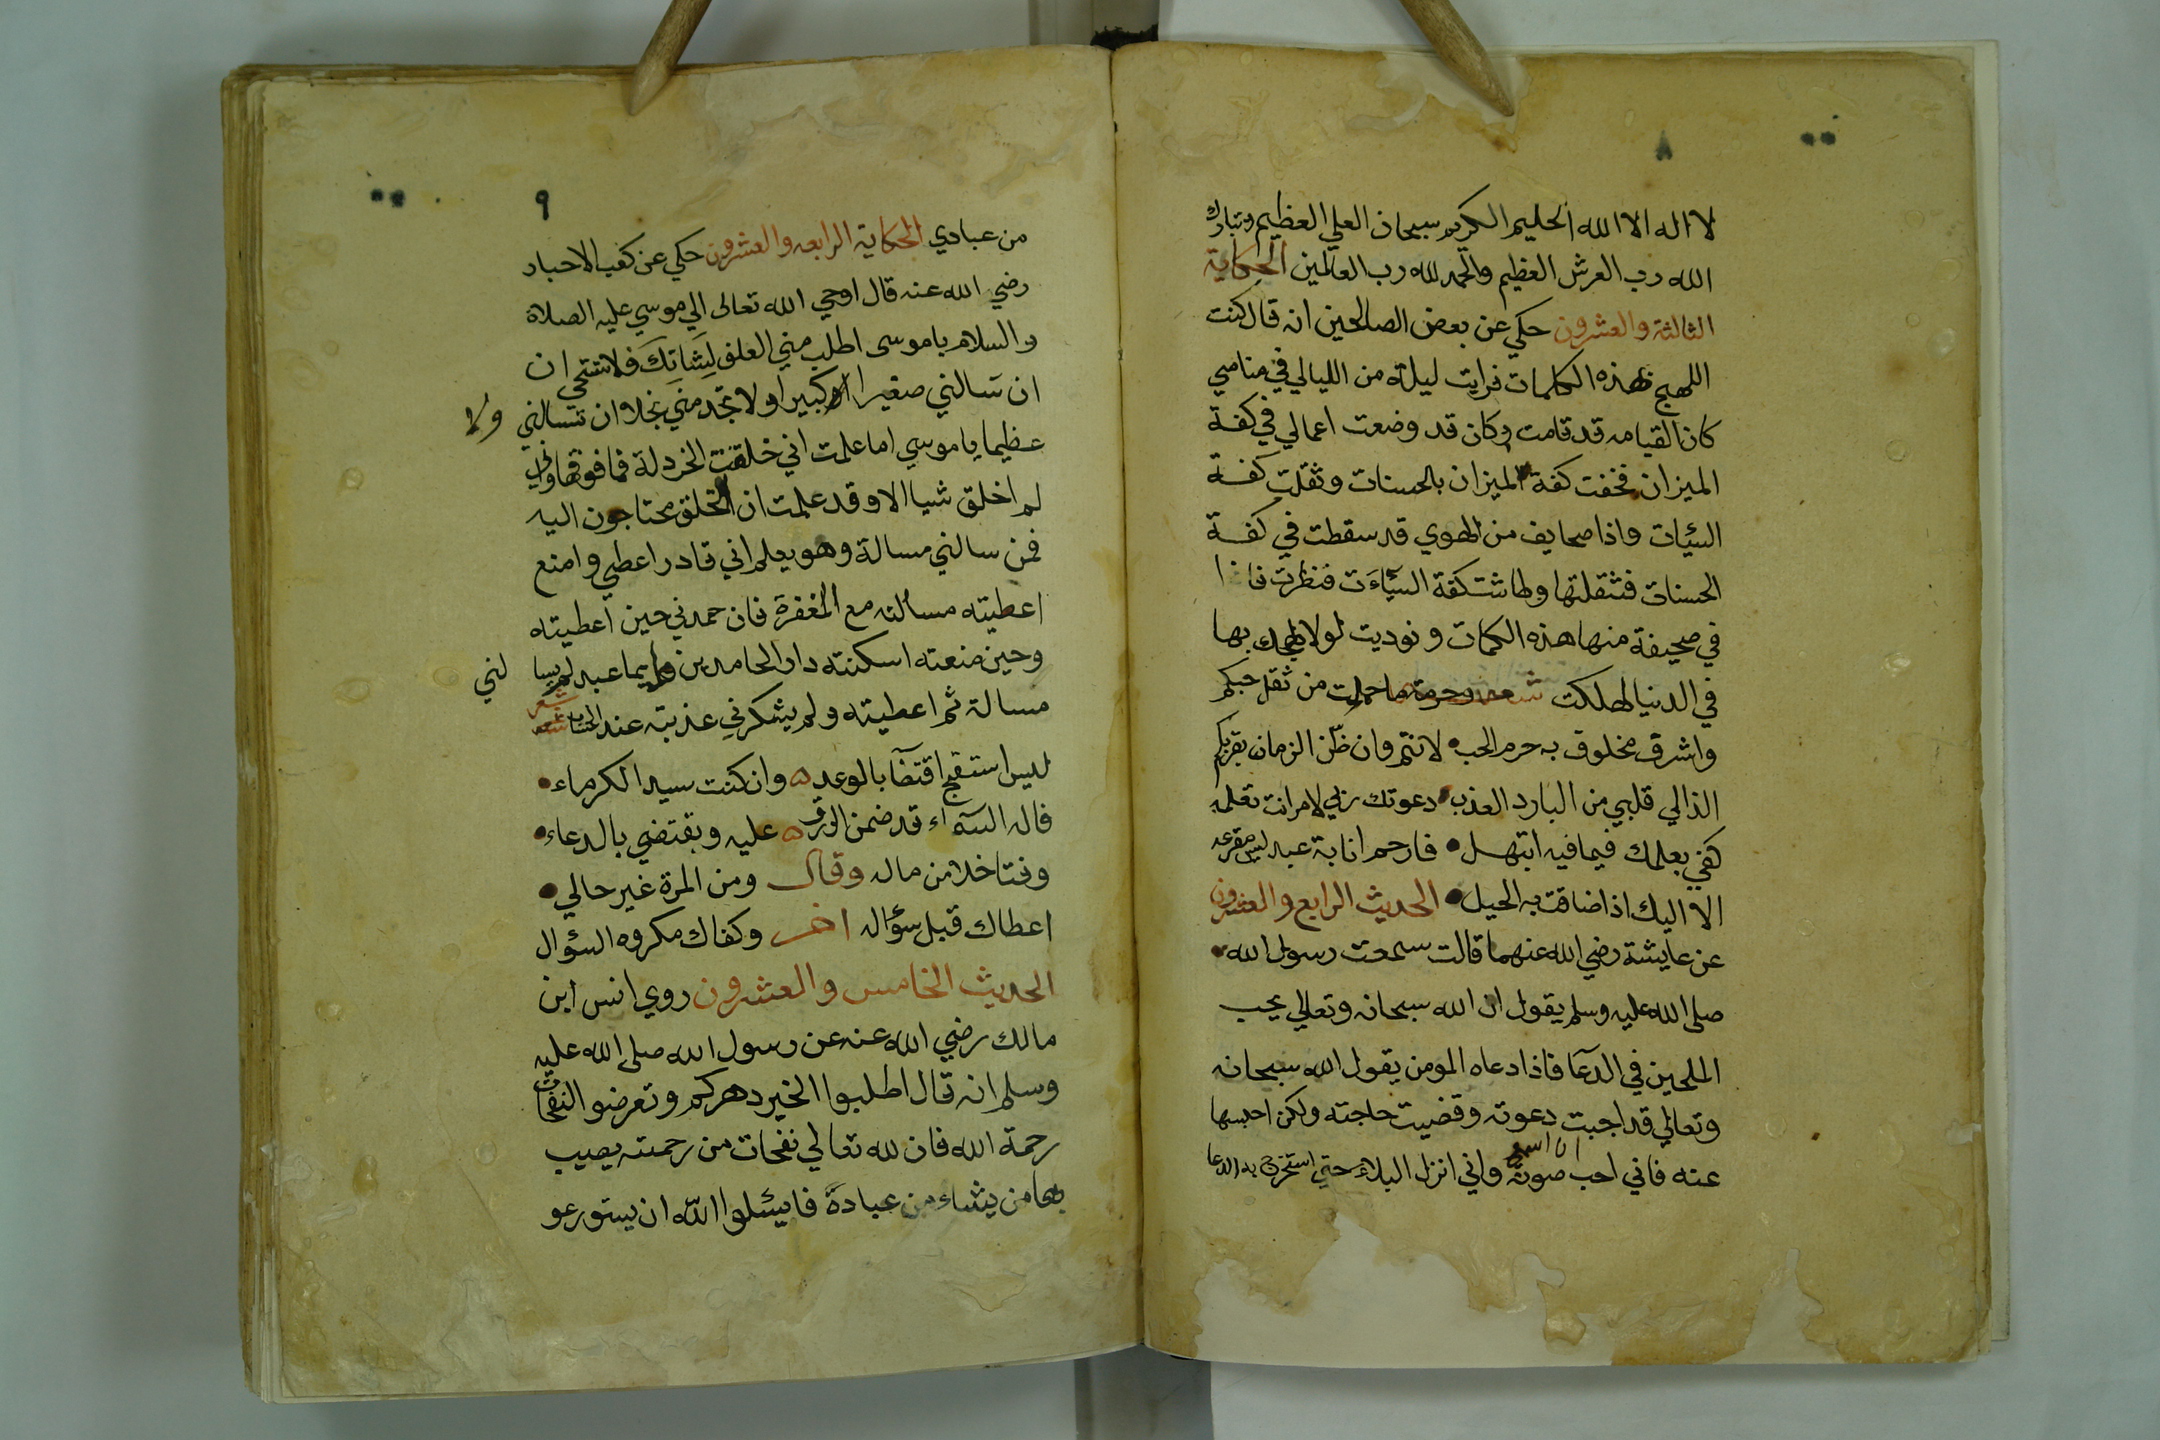 ٨
لا اله الا الله الحليم الكريم سبحان العلي العظيم وتبارك
الله رب العرش العظيم والحمد لله رب العالمين الحكاية
الثالثة والعشرون حكي عن بعض الصالحين انه قال كنت
اللهج بهذه الكلمات فرايت ليلة من الليالي في منامي
كان القيامه قد قامت وكان قد وضعت اعمالي في كفة
الميزان فخفت كفة الميزان بالحسنات وثقلت كفة
السئات واذا صحايف من الهوي قد سقطت في كفة
الحسنات فثقلتها وطاشت كفة السئات فنظرت فاذا
في صحيفة منها هذه الكلمات ونوديت لولا لهجك بها
في الدنيا لهلكت شعر وحرمة ما حملت من ثقل حبكم
واشرف مخلوق به حرم الحب لانتم وان ظن الزمان بقربكم
الذ الي قلبي من البارد العذب دعوتك ربي لامر انت تعلمه
كفي بعلمك فيما فيه ابتهل فارحم انابة عبد ليس مفزعه
الا اليك اذا ضاقت به الحيل الحديث الرابع والعشرون
عن عايشة رضي الله عنهما قالت سمعت رسول الله
صلي الله عليه وسلم يقول ان الله سبحانه وتعالي يحب
الملحين في الدعآ فاذا دعاه المومن يقول الله سبحانه
وتعالي قد اجبت دعوته وقضيت حاجته ولكن احبسها
عنه فاني احب ان اسمع صوته واني انزل البلاء حتي استخرج به الدعا
٩
من عبادي الحكاية الرابعه والعشرون حكي عن كعب الاحبار
رضي الله عنه قال اوحي الله تعالى الي موسي عليه الصلاة
والسلام ياموسى اطلب مني العلف لِشَاتِكَ فلا تستحي ان
ان تسالني صغيرا او كبيرا ولا تجد مني بخلا ان تسالني ولا
عظيما ياموسي اما علمت اني خلقت الخردلة فما فوقها واني
لم اخلق شيا الا وقد علمت ان الخلق محتاجون اليه
فمن سالني مسالة وهو يعلم اني قادر اعطي وامنع
اعطيته مسالته مع المغفرة فان حمدني حين اعطيته
وحين منعته اسكنته دار الحامدين وايما عبد لم يسا لني
مسالة ثم اعطيته ولم يشكرني عذبته عند الحساب شعر
ليس استقبح اقتضآ بالوعد وان كنت سيد الكرماء
فاله السمآء قد ضمن الرزق عليه ويقتضي بالدعاء
وفتا خلا من ماله وقال ومن المرة غير حالي
اعطاك قبل سؤاله اخر وكفاك مكروه السؤال
الحديث الخامس والعشرون روي انس ابن
مالك رضي الله عنه عن رسول الله صلى الله عليه
وسلم انه قال اطلبوا الخير دهركم وتعرضوا النفحات
رحمة الله فان لله تعالي نفحات من رحمته يصيب
بها من يشاء من عبادة فايسٔلوا الله ان يستورعو